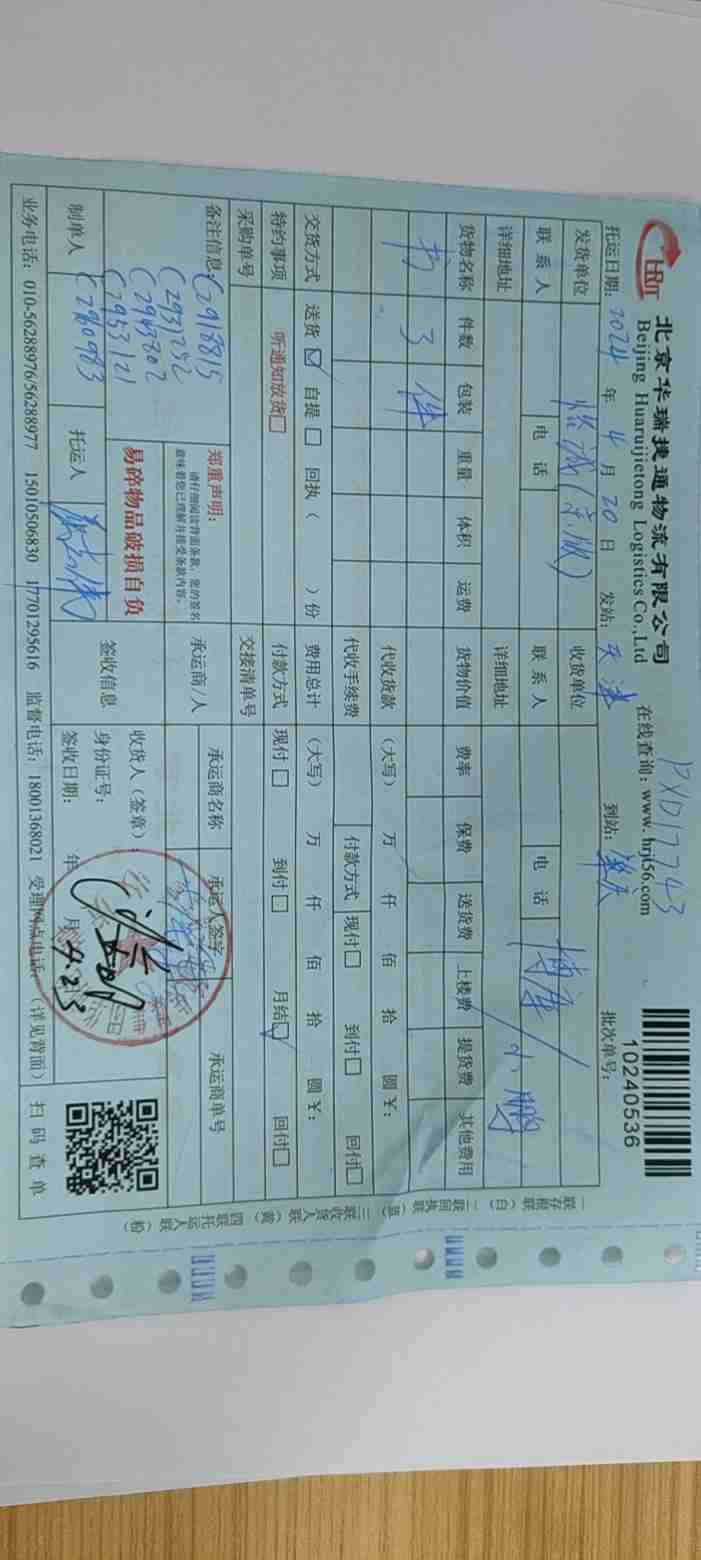 HRJT
北京华瑞捷通物流有限公司
Beijing Huaruijietong Logistics Co.,Ltd
PXD17743
在线查询：www.hrjt56.com
10240536
托运日期：2024 年 4 月 20 日 发站：天津 到站：肇庆 批次单号：
发货单位 怡诚(京版) 收货单位 博库/小鹏
联系人 电话 联系人 电话
详细地址 详细地址
货物名称 件数 包装 重量 体积 运费 货物价值 费率 保费 送货费 上楼费 提货费 其他费用
书 3 件
代收货款 （大写） 万 仟 佰 拾 圆￥：
代收手续费 付款方式 现付□ 到付□ 回付□
交货方式 送货☑ 自提□ 回执（ ）份 费用总计 （大写） 万 仟 佰 拾 圆￥：
特约事项 听通知放货□ 付款方式 现付□ 到付□ 月结☑ 回付□
采购单号 交接清单号
备注信息 C2918815
C2931252
C2949802
C2953121
C2960983
郑重声明：
请仔细阅读背面条款，您的签名
意味着您已理解并接受条款内容。
易碎物品破损自负
承运商/人 承运商名称 承运人签字 承运商单号
制单人 托运人
签收信息 收货人（签章）：
身份证号：
签收日期： 年 月
4.23
业务电话：010-56288976/56288977 15010506830 17701295616 监督电话：18001368021 受理网点电话：（详见背面）
扫码查单
一联存根联（白） 二联回执联（蓝） 三联收货人联（黄） 四联托运人联（粉）